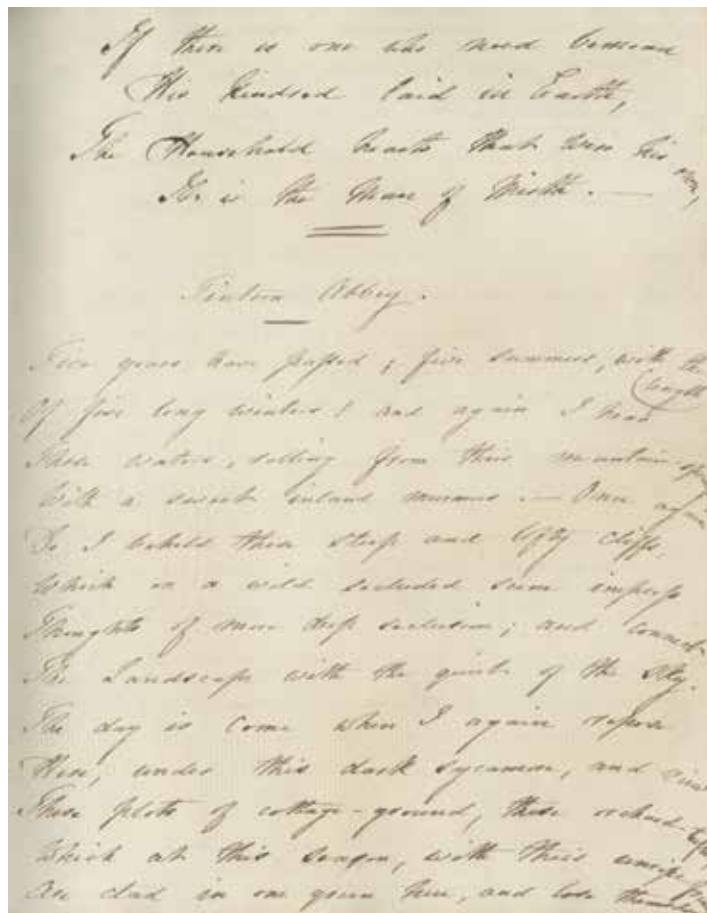 If there is one who need bemoan
His kindred laid in Earth,
The Household hearts that were his own,
It is the Man of Mirth. —
Tintern Abbey.
Five years have passed; five summers, with the length
Of five long winters! and again I hear
These waters, rolling from their mountain-springs
With a sweet inland murmur. — Once again
Do I behold these steep and lofty cliffs,
Which on a wild secluded scene impress
Thoughts of more deep seclusion; and connect
The Landscape with the quiet of the Sky.
The day is come when I again repose
Here, under this dark sycamore, and view
These plots of cottage-ground, these orchard-tufts,
Which at this season, with their unripe fruits,
Are clad in one green hue, and lose themselves